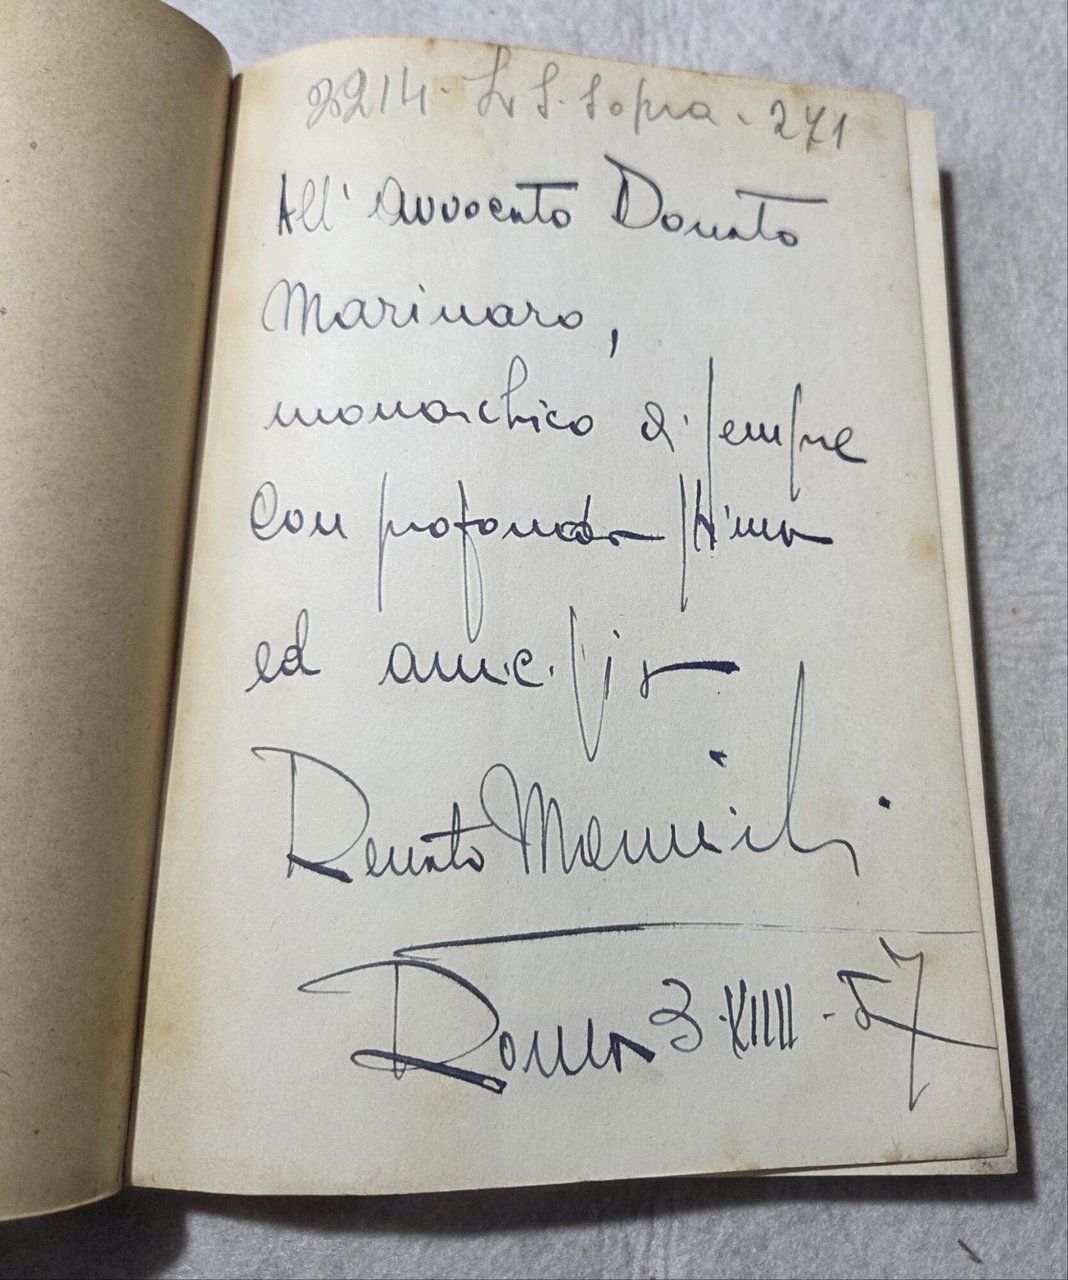 2214 - L S. Sopra - 271
All'Avvocato Donato
Marinaro,
monarchico di sempre
Con profonda stima
ed amicizia
Renato
Roma 3-XIIII-57